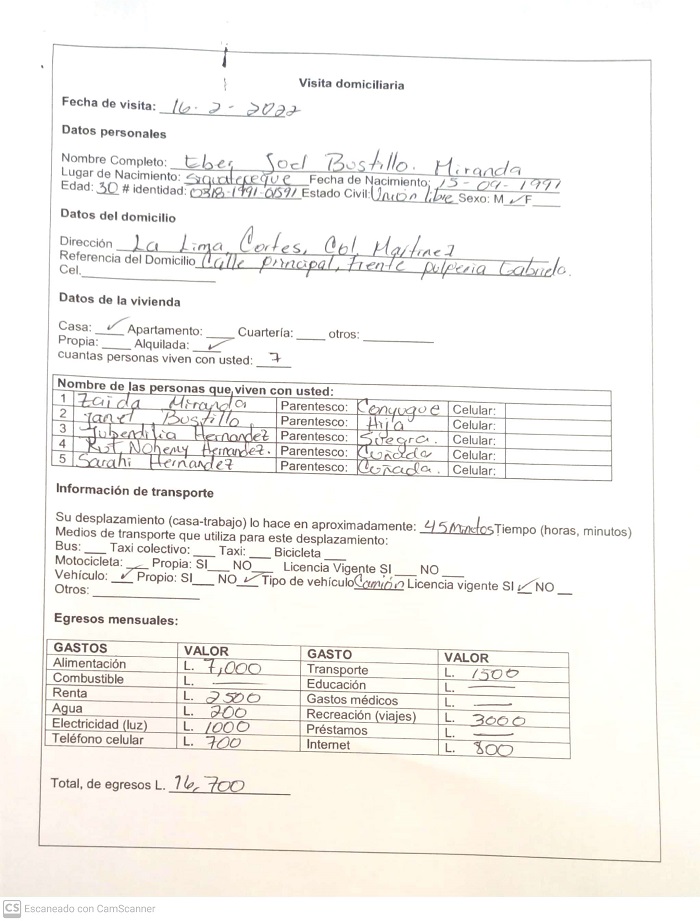 Visita domiciliaria
Fecha de visita: 16-2-2022
Datos personales
Nombre Completo: Eber Joel Bustillo. Miranda
Lugar de Nacimiento: Siguatepeque Fecha de Nacimiento: 15-09-1991
Edad: 30 # identidad: 0318-1991-01591 Estado Civil: Union libre Sexo: M ✓ F
Datos del domicilio
Dirección La Lima, Cortes, Col Martinez
Referencia del Domicilio Calle principal, frente pulperia Gabriela.
Cel.
Datos de la vivienda
Casa: ✓ Apartamento: Cuartería: otros:
Propia: Alquilada: ✓
cuantas personas viven con usted: 7
Nombre de las personas que viven con usted:
1 Zaida Miranda Parentesco: Conyugue Celular:
2 Janel Bustillo Parentesco: Hija Celular:
3 Hernandez Parentesco: Suegra. Celular:
4 Nohemy Hernandez. Parentesco: Cuñada Celular:
5 Sarahi Hernandez Parentesco: Cuñada. Celular:
Información de transporte
Su desplazamiento (casa-trabajo) lo hace en aproximadamente: 45 Minutos Tiempo (horas, minutos)
Medios de transporte que utiliza para este desplazamiento:
Bus: Taxi colectivo: Taxi: Bicicleta
Motocicleta: Propia: SI NO Licencia Vigente SI NO
Vehículo: ✓ Propio: SI NO ✓ Tipo de vehículo Camión Licencia vigente SI ✓ NO
Otros:
Egresos mensuales:
GASTOS VALOR GASTO VALOR
Alimentación L. 7,000 Transporte L. 1500
Combustible L. — Educación L. —
Renta L. 2500 Gastos médicos L. —
Agua L. 200 Recreación (viajes) L. 3000
Electricidad (luz) L. 1000 Préstamos L. —
Teléfono celular L. 700 Internet L. 800
Total, de egresos L. 16,700
CS Escaneado con CamScanner